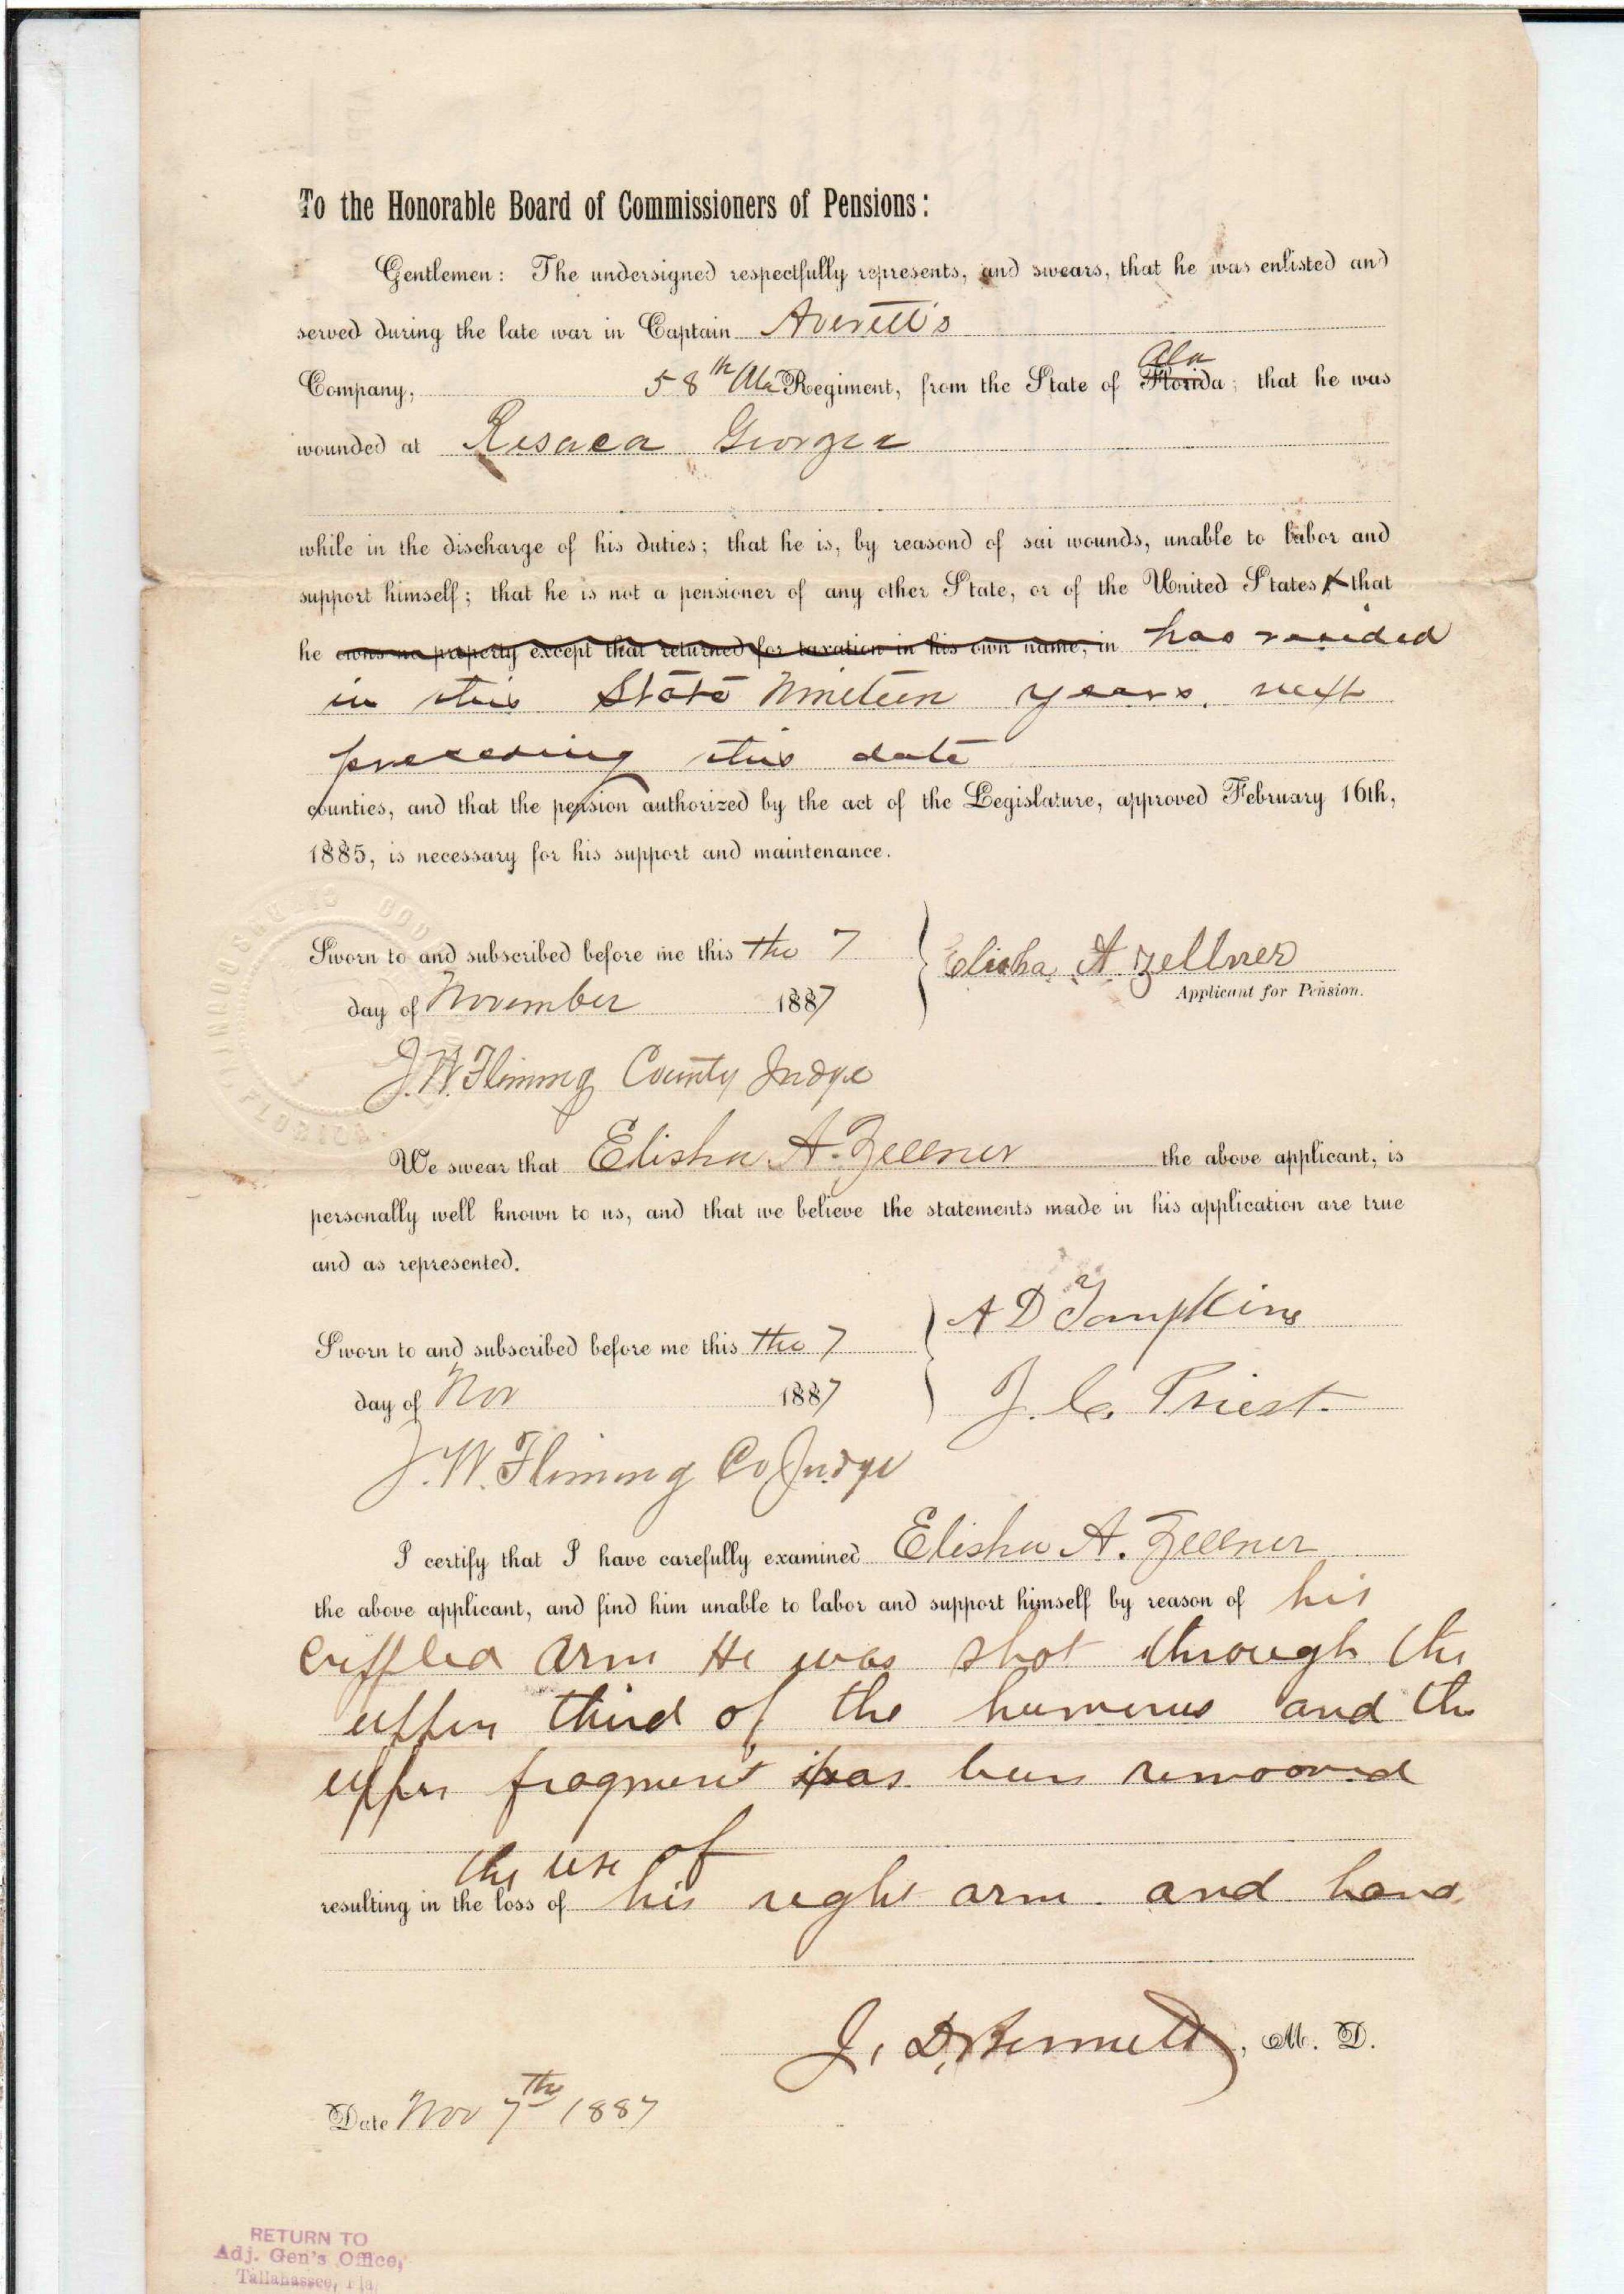 To the Honorable Board of Commissioners of Pensions:
Gentlemen: The undersigned respectfully represents, and swears, that he was enlisted and
served during the late war in Captain Averett's
Ala
Company, 58th Ala Regiment, from the State of Florida; that he was
wounded at Resaca Georgia
while in the discharge of his duties; that he is, by reasond of sai wounds, unable to labor and
support himself; that he is not a pensioner of any other State, or of the United States & that
he owns no property except that returned for taxation in his own name, in has resided
in this State Nineteen years, next
preceding this date
counties, and that the pension authorized by the act of the Legislature, approved February 16th,
1885, is necessary for his support and maintenance.
Sworn to and subscribed before me this the 7
Elisha A Zellner
day of November 1887
Applicant for Pension.
J. W. Fleming County Judge
FLORIDA
We swear that Elisha A. Zellner the above applicant, is
personally well known to us, and that we believe the statements made in his application are true
and as represented.
A D Tompkins
Sworn to and subscribed before me this the 7
day of Nov 1887
J. C. Priest.
J. W. Fleming Co Judge
I certify that I have carefully examined Elisha A. Zellner
the above applicant, and find him unable to labor and support himself by reason of his
crippled arm He was shot through the
upper third of the humerus and the
upper fragment has been remooved
the use of
resulting in the loss of his right arm and hand
J. D. Bennett, M. D.
Date Nov 7th 1887
RETURN TO
Adj. Gen's Office,
Tallahassee, Fla